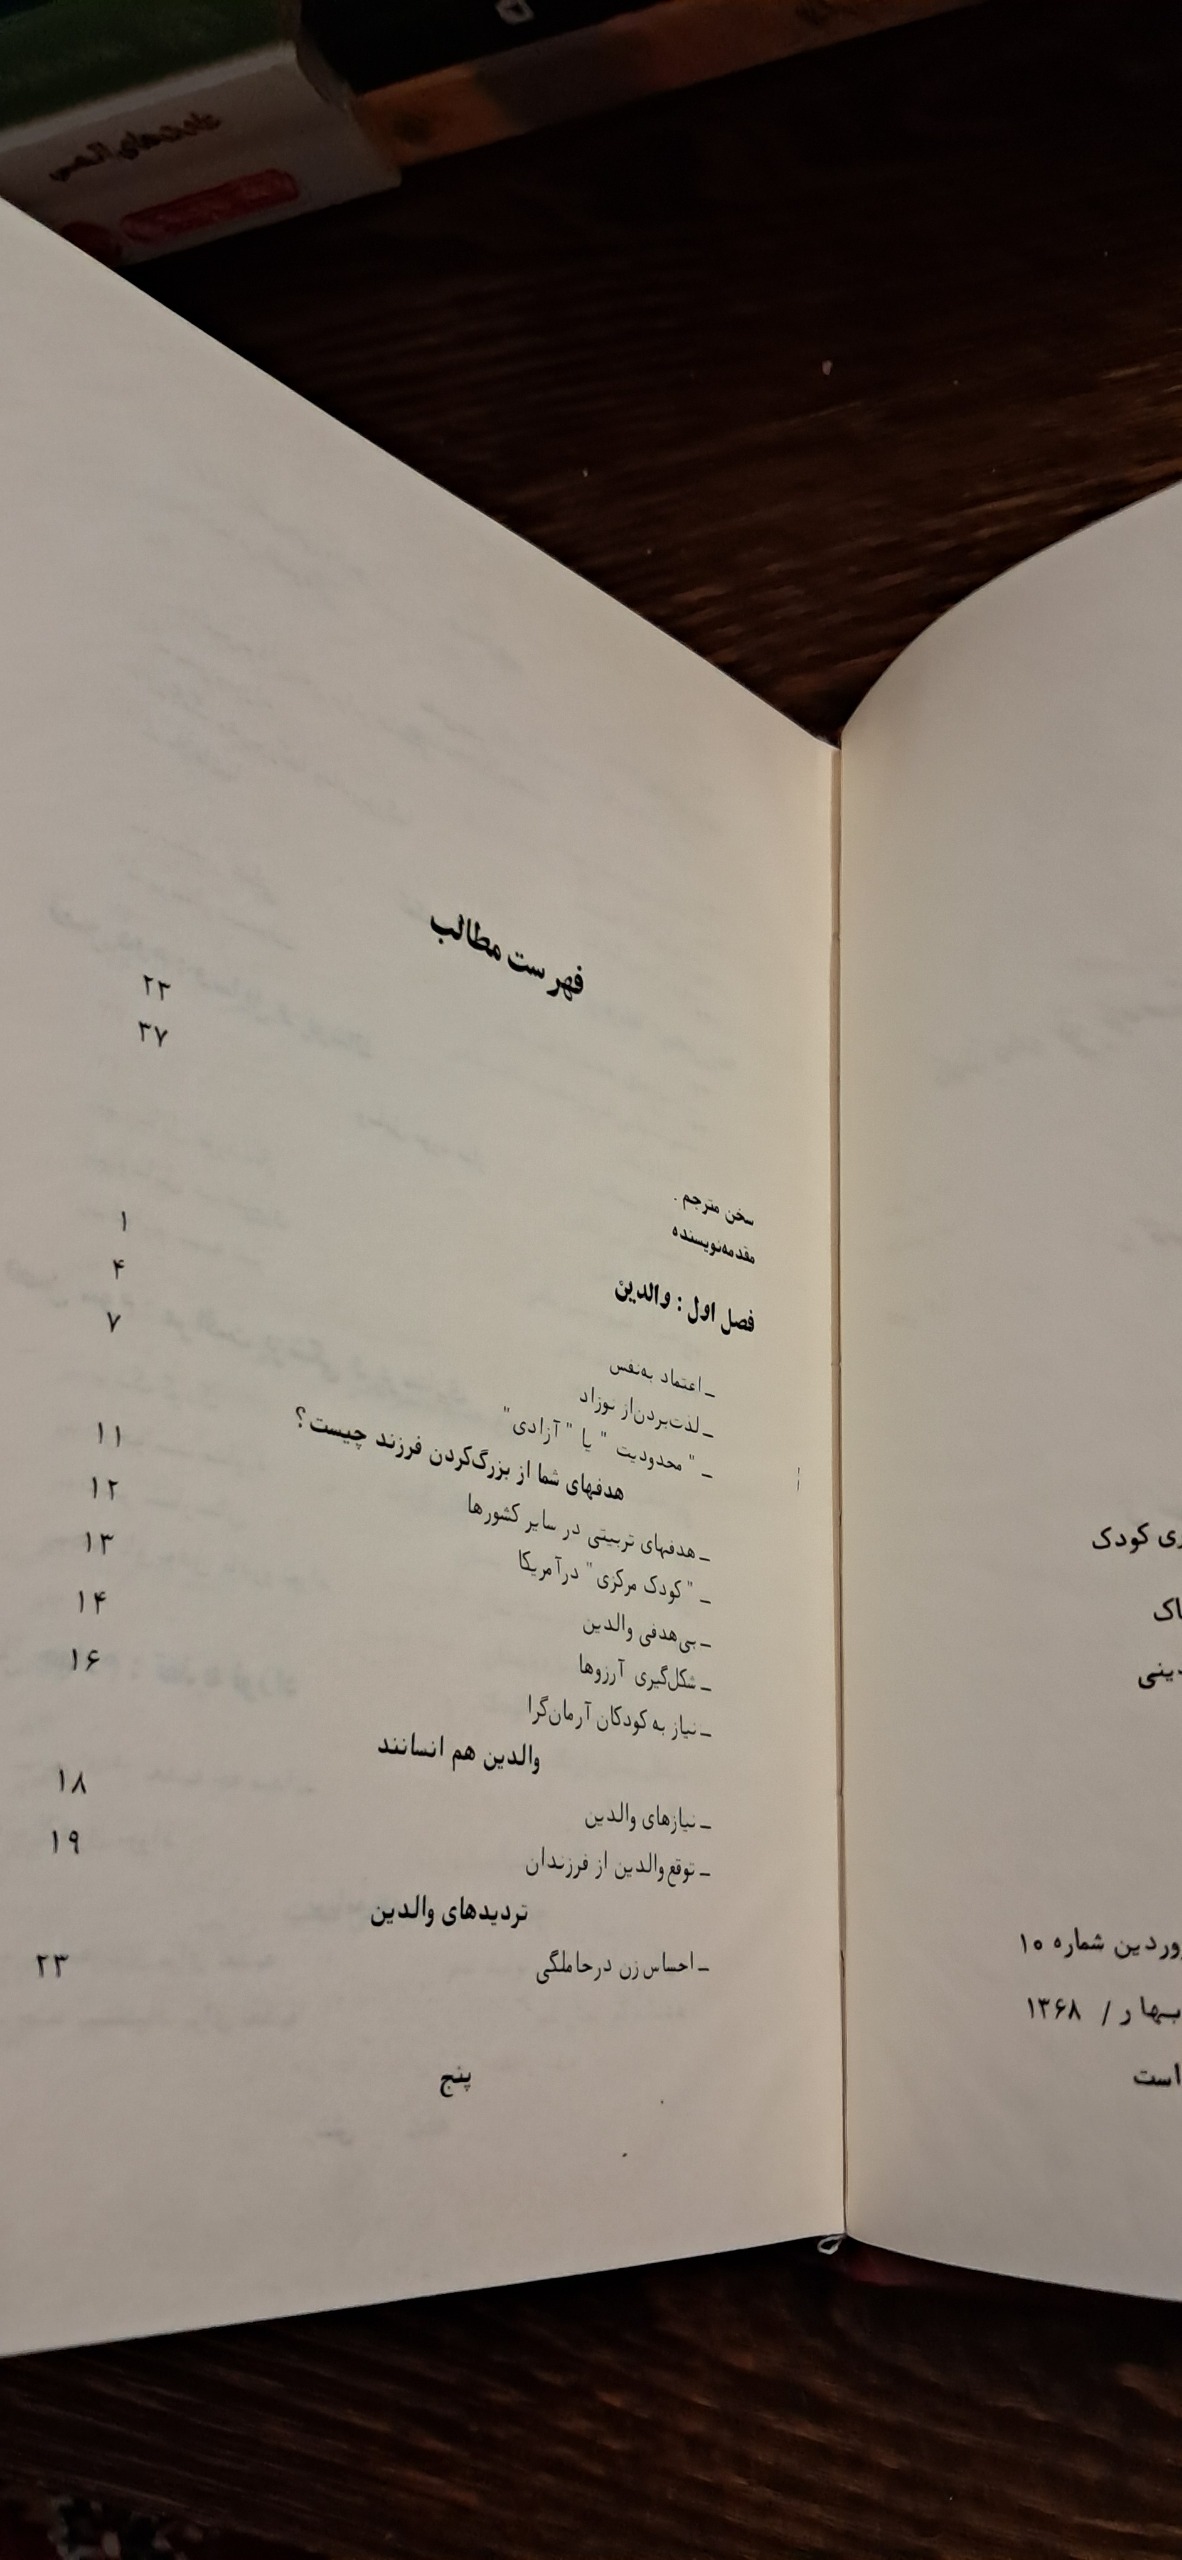 ری کودک
اک
دینی
وردین شماره ۱۰
بهار / ۱۳۶۸
است
فهرست مطالب
سخن مترجم . ۲۳
مقدمه‌نویسنده ۳۷
فصل اول : والدین
_ اعتماد به‌نفس ۱
_ لذت‌بردن‌از نوزاد ۴
_ " محدودیت " یا " آزادی" ۷
هدفهای شما از بزرگ‌کردن فرزند چیست؟
_ هدفهای تربیتی در سایر کشورها ۱۱
_ " کودک مرکزی" درآمریکا ۱۲
_ بی‌هدفی والدین ۱۳
_ شکل‌گیری آرزوها ۱۴
_ نیاز به کودکان آرمان‌گرا ۱۶
والدین هم انسانند
_ نیازهای والدین ۱۸
_ توقع‌والدین از فرزندان ۱۹
تردیدهای والدین
_ احساس‌زن درحاملگی ۲۳
پنج